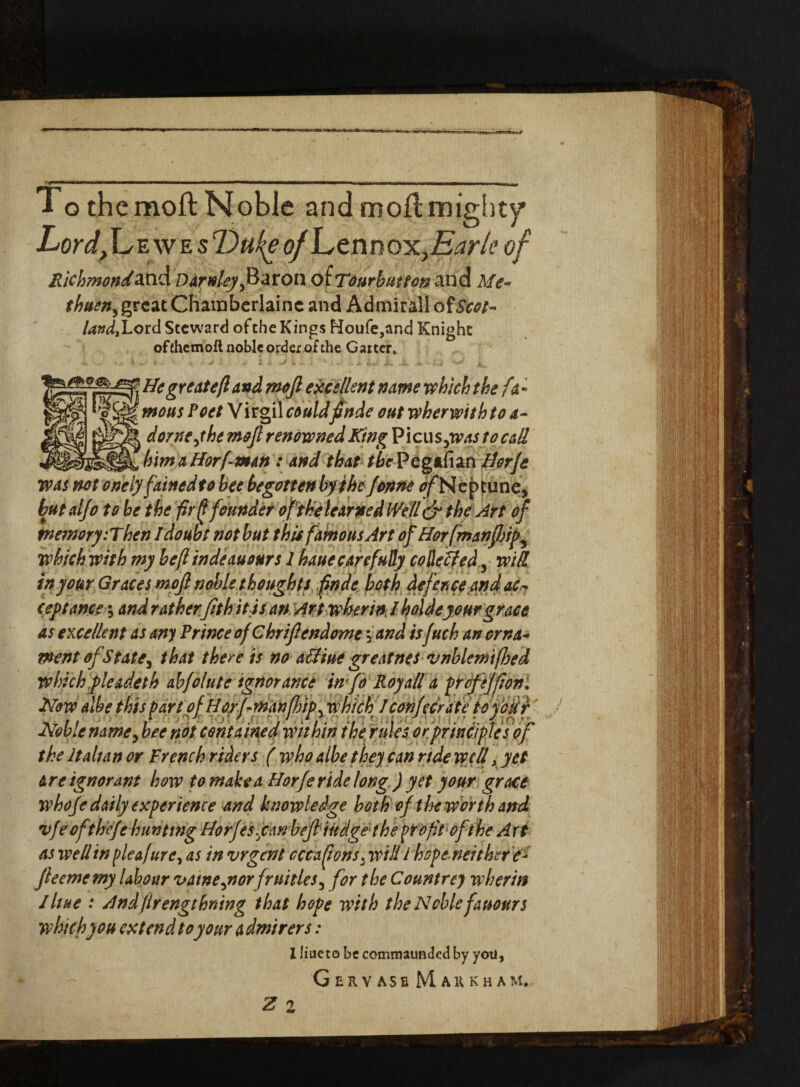 To the moſt Noble and moſt mighty
Lord, LEWES Duke of Lennox, Earle of
Richmond and Darnley, Baron of Tourbutton and Me-
thuen, great Chamberlaine and Admirall of Scot-
land, Lord Steward of the Kings Houſe, and Knight
of the moſt noble order of the Garter.
THe greateſt and moſt excellent name which the fa-
mous Poet Virgil could finde out wherwith to a-
dorne, the moſt renowned King Picus, was to call
him a Horſ-man : and that the Pegaſian Horſe
was not onely fained to bee begotten by the ſonne of Neptune,
but alſo to be the firſt founder of the learned Well & the Art of
memory: Then I doubt not but this famous Art of Horſmanſhip,
which with my beſt indeauours I haue carefully collected, will
in your Graces moſt noble thoughts finde both defence and ac-
ceptance ; and rather ſith it is an Art wherin I holde your grace
as excellent as any Prince of Chriſtendome ; and is ſuch an orna-
ment of State, that there is no actiue greatnes vnblemiſhed
which pleadeth abſolute ignorance in ſo Royall a profeſſion.
Now albe this part of Horſ-manſhip, which I conſecrate to your
Noble name, bee not contained within the rules or principles of
the Italian or French riders ( who albe they can ride well, yet
are ignorant how to make a Horſe ride long ) yet your grace
whoſe daily experience and knowledge both of the worth and
vſe of theſe hunting Horſes, can beſt iudge the profit of the Art
as well in pleaſure, as in vrgent occaſions, will I hope neither e-
ſteeme my labour vaine, nor fruitles, for the Countrey wherin
I liue : And ſtrengthning that hope with the Noble fauours
which you extend to your admirers :
I liue to be commaunded by you,
GERVASE MARKHAM.
Z 2